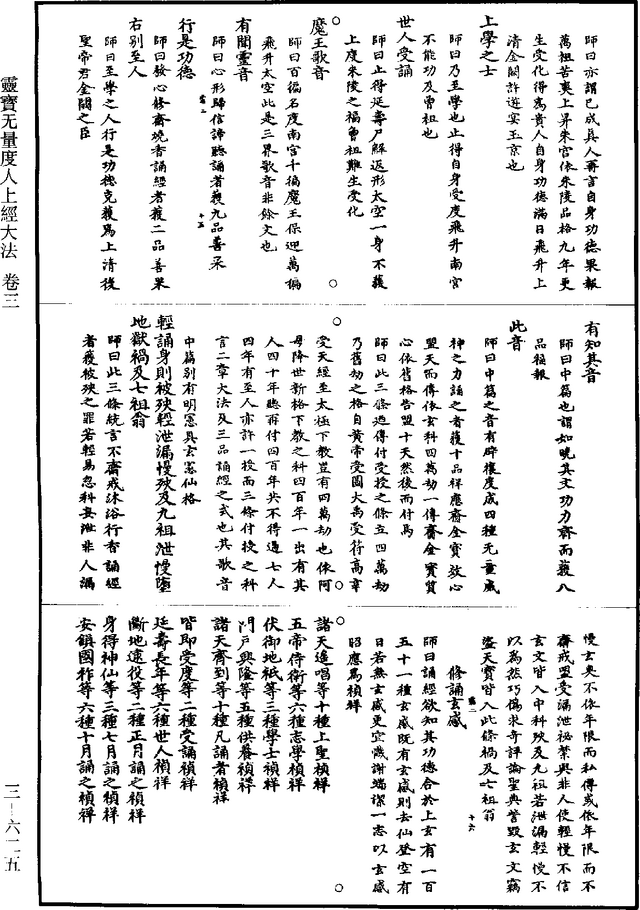 師曰亦謂已成真人再言自身功德果報
萬祖苦爽上昇朱宮依朱陵品格九年更
生受化得為貴人自身功德滿日飛升上
清金闕許遊宴玉京也
上學之士
師曰乃至學也止得自身受度飛升南宮
不能功及曾祖也
世人受誦
師曰止得延壽尸解返形太空一身不蒙
上度朱陵之福曾祖難生受化
魔王歌音
師曰百徧名度南宮千徧魔王保迎萬徧
飛升太空此是三界歌音非餘文也
有聞靈音
師曰心形歸信諦聽誦者獲九品善果
十五
行是功德
師曰發心修齋燒香誦經者獲二品善果
右別至人
師曰至學之人行是功德克獲為上清後
聖帝君金闕之臣
有知其音
師曰中篇也謂如曉其文功力齋而獲八
品福報
此音
師曰中篇之音有辟攉度成四種无量威
神之力誦之者獲十品祥應齋金寶效心
盟天而傳依玄科四萬劫一傳齎金寶質
心依舊格告盟十天然後而付焉
師曰此三條過傳付受授之條立四萬劫
乃舊劫之格自黃帝受圖大禹受符高辛
受天經至太極下教豈有四萬劫也依阿
母降世新格下教之科四百年一出有其
人四十年聽再付四百年共不得過七人
四年有至人亦許一授而三條付授之科
言二章大法及三品誦經之式也其歌音
中篇別有明憲具玄憲仙格
輕誦身則被殃輕泄漏慢殃及九祖泄慢墮
地獄禍及七祖翁
師曰此三條統言不齋戒沐浴行香誦經
者獲被殃之罪若輕易忽科妄泄非人漏
慢玄奧不依年限而私傳或依年限而不
齋戒盟受漏泄祕禁與非人使輕慢不信
玄文皆入中科殃及九祖若泄漏輕慢不
以為然巧偽求奇評論聖典訾毀玄文竊
盜天寶皆入此條禍及七祖翁
十六
修誦玄感
師曰誦經欲知其功德合於上玄有一百
五十一種玄感既有玄感則去仙登空有
日若無玄感更宜懺謝端潔一志以玄感
昭應為禎祥
諸天遥唱等十種上聖禎祥
五帝侍衛等六種志學禎祥
伏御地祇等三種學士禎祥
門戶興隆等五種供養禎祥
諸天齊到等十種凡誦者禎祥
皆即受度等二種受誦禎祥
延壽長年等六種世人禎祥
斷地逮役等二種正月誦之禎祥
身得神仙等三種七月誦之禎祥
安鎮國祚等六種十月誦之禎祥
靈寶无量度人上經大法 卷三
三－六二五